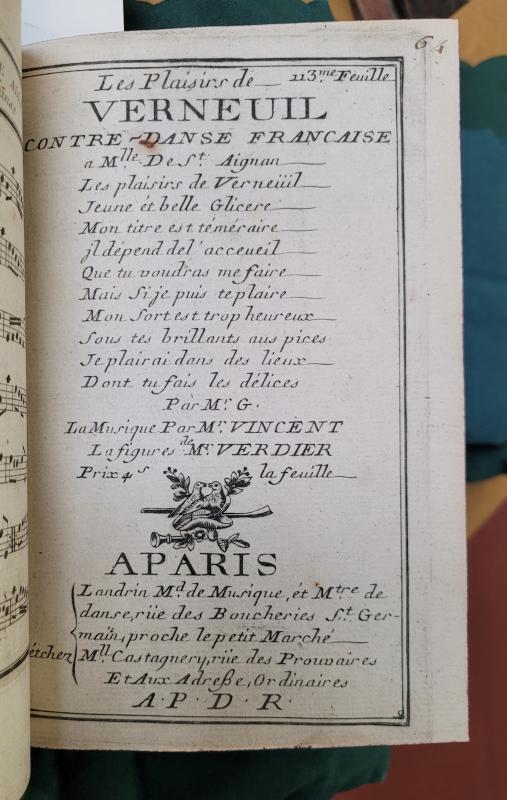 64
Les Plaisirs de 113.me Feuille
VERNEUIL
CONTRE-DANSE FRANCAISE
a M.lle De S.t Aignan
Les plaisirs de Verneüil
Jeune ét belle Glicere
Mon titre est téméraire
jl dépend del'acceueil
Que tu voudras me faire
Mais Si je puis te plaire
Mon Sort est trop heureux
Sous tes brillants aus pices
Je plairai dans des lieux
Dont tu fais les délices
Par M.r G.
La Musique Par M.r VINCENT
La figures de M.r VERDIER
Prix 4 s la feuille
A PARIS
Landrin M.d de Musique, ét M.tre de
danse, rüe des Boucheries S.t Ger-
main, proche le petit Marché
ét chez M.ll Castagnery, rüe des Prouvaires
Et Aux Adreße, Ordinaires
A. P. D. R.